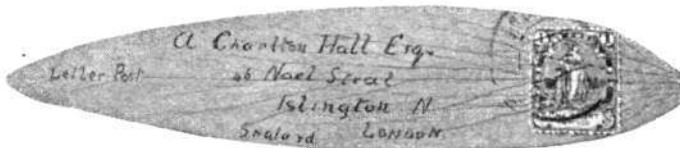 A Charlton Hall Esq.
Letter Post
46 Noel Street
Islington N
England LONDON